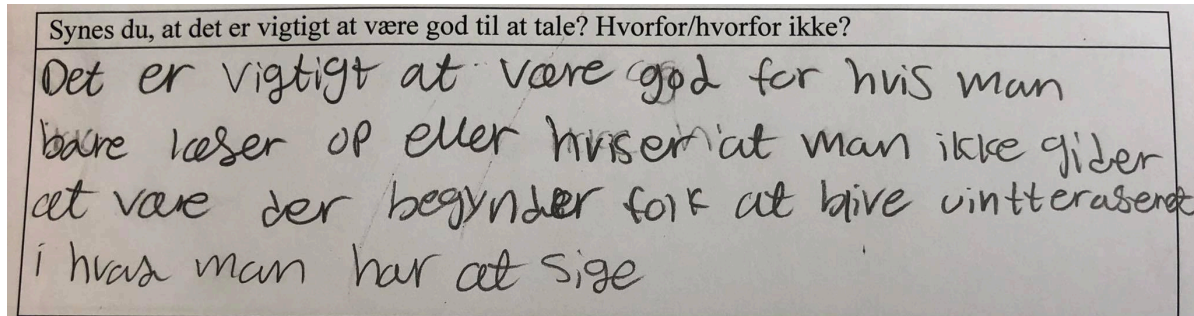 Synes du, at det er vigtigt at være god til at tale? Hvorfor/hvorfor ikke?
Det er vigtigt at være god for hvis man
bare læser op eller hviser at man ikke gider
at være der begynder folk at blive uintteraseret
i hvad man har at sige